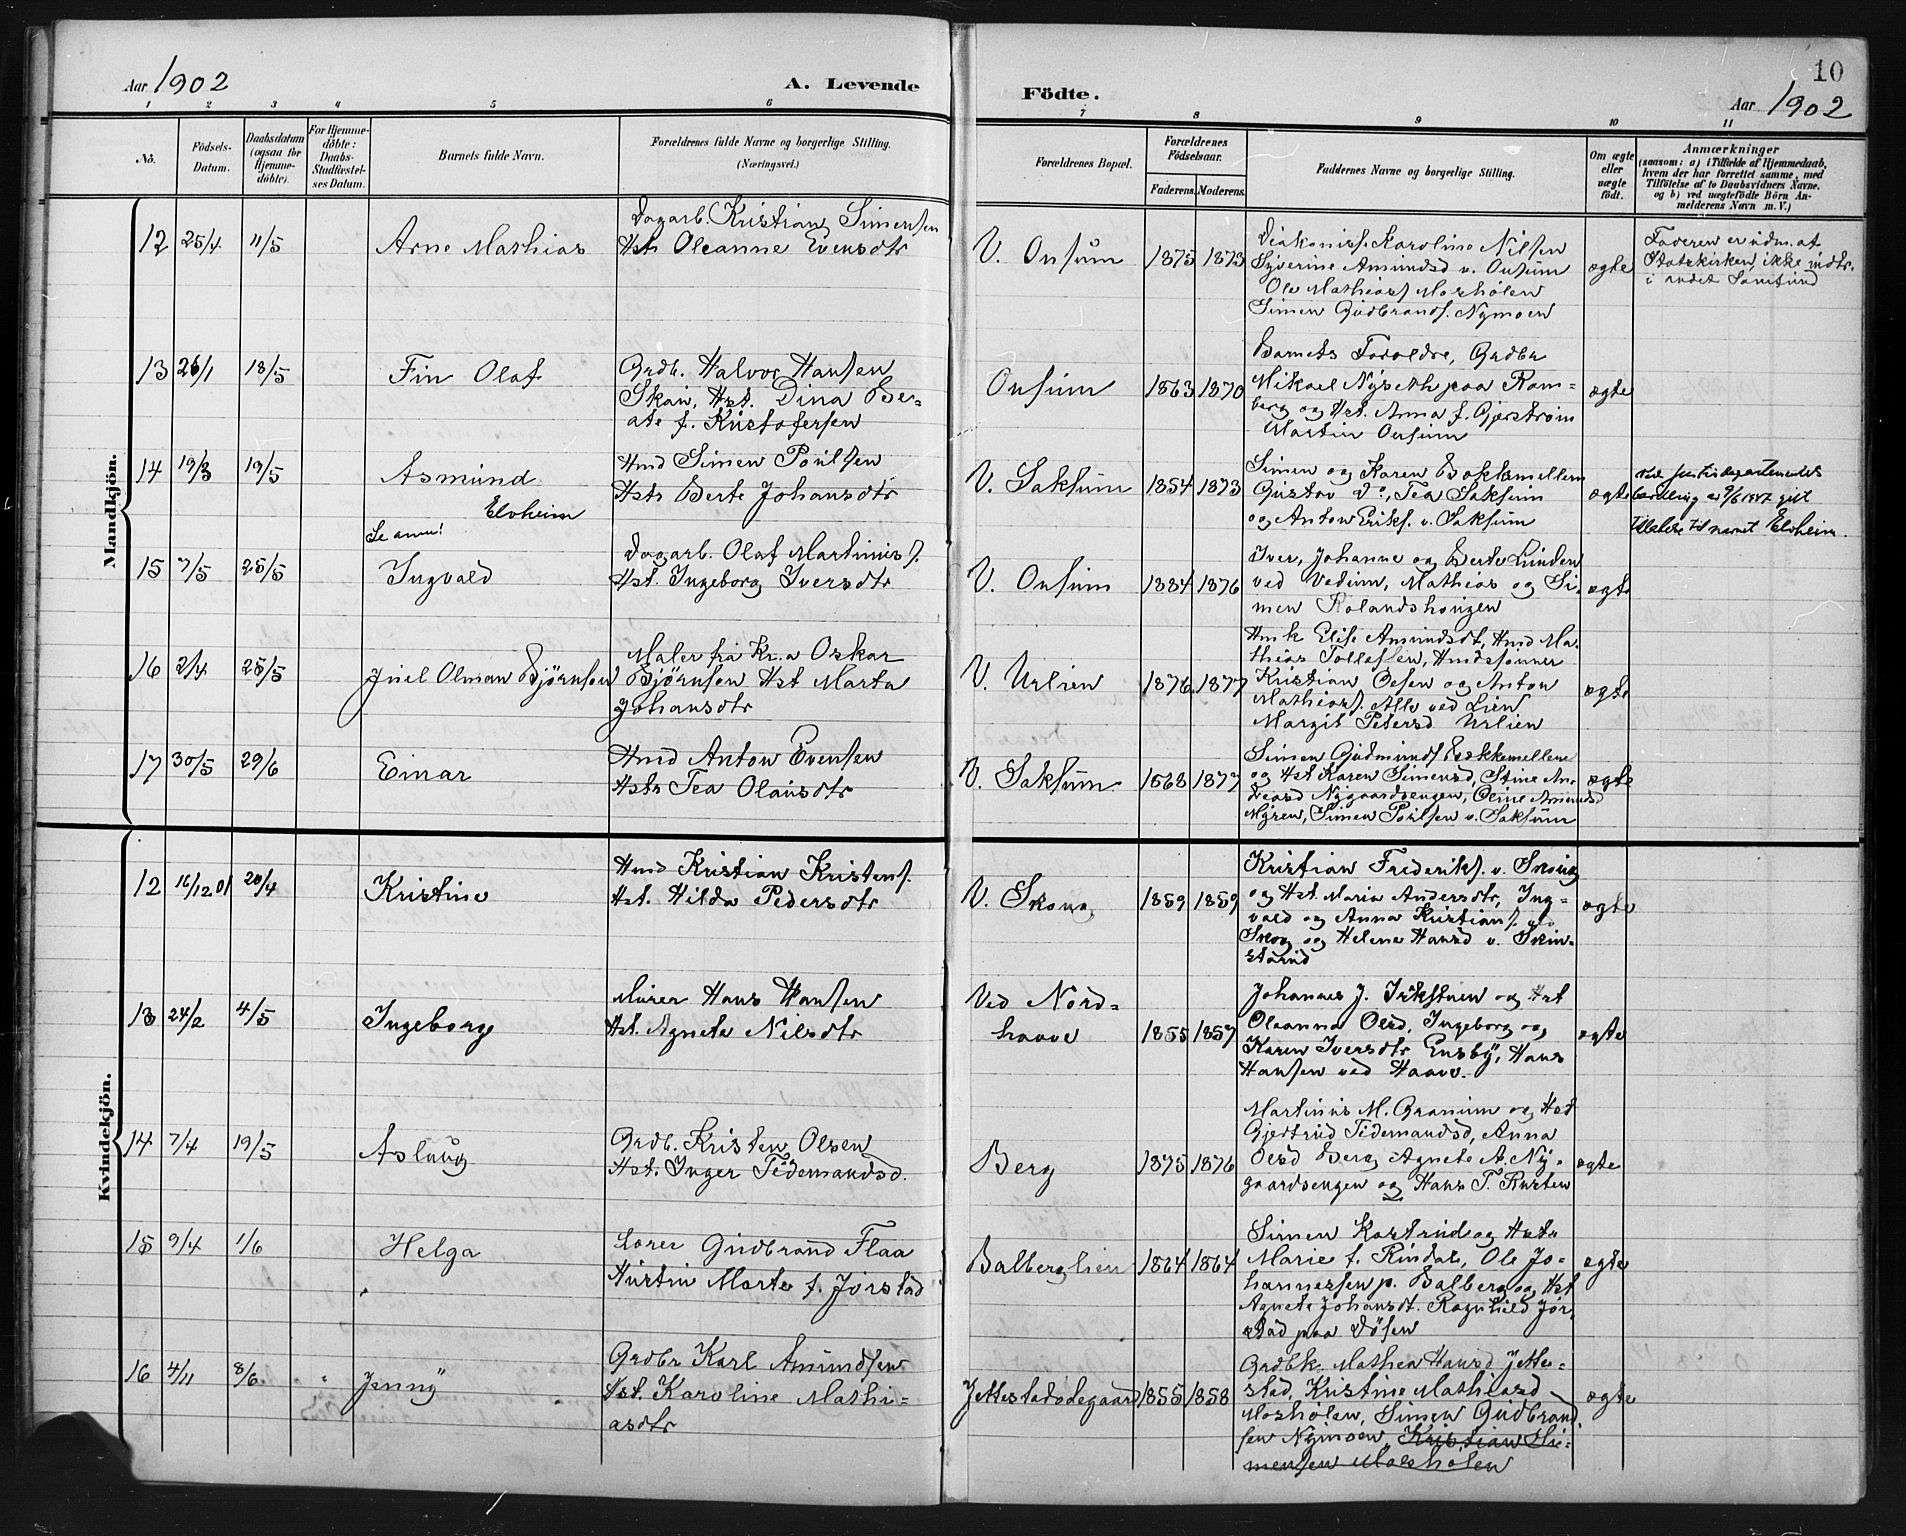 Aar 1902
A. Levende
1 2 3 4 5 6
No.
Födsels-Datum.
Daabsdatum (ogsaa for Hjemme-döbte).
For Hjemme-döbte: Daabs-Stadfæstel-ses Datum.
Barnets fulde Navn.
Forældrenes fulde Navne og borgerlige Stilling. (Næringsvei.)
Födte.
10
Aar 1902
7 8 9 10 11
Forældrenes Bopæl.
Forældrenes Födselsaar.
Faderens. Moderens.
Faddernes Navne og borgerlige Stilling.
Om ægte eller uægte födt.
Anmærkninger
(saasom: a) i Tilfælde af Hjemmedaab,
hvem der har forrettet samme, med
Tilföielse af to Daabsvidners Navne.
og b) ved uægtefödte Börn An-
melderens Navn m. V.)
Mandkjön.
12 25/4 11/5 Arne Mathias
Dagarb. Kristian Simensen
Hst. Oleanne Evensdtr
V. Onsum 1875 1873
Diakonisse Karoline Nilsen
Syverine Amundsd v. Onsum
Ole Mathias. Mosholen
Simen Gudbrands. Nymoen
ægte
Faderen er udm. af
Statskirken, ikke indtr.
i andet Samfund
13 26/1 18/5 Fin Olaf
Grdb. Halvor Hansen
Skau, Hst. Dina Be-
ate f. Kristofersen
Onsum 1863 1870
Barnets Foreldre, Grdbr
Mikael Nyseth paa Ram-
berg og Hst. Anna f. Gjerstrøm
Martin Onsum
ægte
14 19/3 19/5 Asmund
Elvheim
Se anm!
Hmd Simen Poulsen
Hst. Berte Johansdtr
V. Saksum 1854 1873
Simen og Karen Bakkemellem
Gustav do, Tea Saksum
og Anton Eriks. v. Saksum
ægte
Ved Justisdepartementets
bevilling av 9/6 1947 gitt
tillatelse til navnet Elvheim.
15 7/5 25/5 Ingvald
Dagarb. Olaf Martinus s.
Hst. Ingeborg Iversdtr
V. Onsum 1884 1876
Iver, Johanne og Berte Linden
ved Vedum, Mathias og Si-
men Rolandshougen
ægte
16 2/4 25/5 Juel Olman Bjørnson
Maler fra Kr.a Oskar
Bjørnson Hst Marta
Johansdtr
V. Urlien 1876 1877
Hmk Elise Amundsdt, Hmd Ma-
thias Tollefsen, Hmdssønner
Kristian Olsen og Anton
Mathias s. Alle ved Lien
Margit Petersd Urlien
ægte
17 30/5 29/6 Einar
Hmd Anton Evensen
Hst. Tea Olausdtr
V. Saksum 1868 1877
Simen Gudmunds Bakkemellem
og Hst Karen Simensd, Stine An-
dreasd Nygaardsengen, Oline Amundsd
Myren, Simen Poulsen v. Saksum
ægte
Kvindekjön.
12 16/12 01 20/4 Kristine
Hmd Kristian Kristens.
Hst. Hilda Pedersdtr
V. Skoug 1859 1859
Kristian Frederiks. v. Skoug
og Hst Marie Andersdtr, Ing-
vald og Anna Kristians. v.
Skoug og Helene Hansd v. Skin-
starud
ægte
13 24/2 4/5 Ingeborg
Murer Hans Hansen
Hst. Agnete Nilsdtr
Ved Nord-
haave 1855 1857
Johannes J. Trøkstuen og Hst
Oleanna Olsd, Ingeborg og
Karen Iversdtr Ensby, Hans
Hansen ved Haave.
ægte
14 7/4 19/5 Aslaug
Grdb. Kristen Olsen
Hst. Inger Tidemandsd.
Berg 1875 1876
Martinus M. Granum og Hst
Gjertrud Tidemandsd, Anna
Olsd Berg Agnete A. Ny-
gaardsengen og Hans T. Rusten
ægte
15 9/4 1/6 Helga
Lærer Gudbrand Flaa
Hustru Marte f. Jørstad
Balberglien 1864 1864
Simen Kastrud og Hst
Marie f. Rindal, Ole Jo-
hannessen p. Balberg og Hst
Agnete Johansdt. Ragnhild Jør-
stad paa Døsen
ægte
16 4/11 8/6 Jenny
Grdbr Karl Amundsen
Hst. Karoline Mathi-
asdtr
Jettestadødegaard 1855 1858
Grdbk. Mathea Hansd Jette-
stad, Kristine Mathiasd
Mosholen, Simen Gudbrand-
sen Nymoen, Kristian Si-
mensen Mosholen
ægte